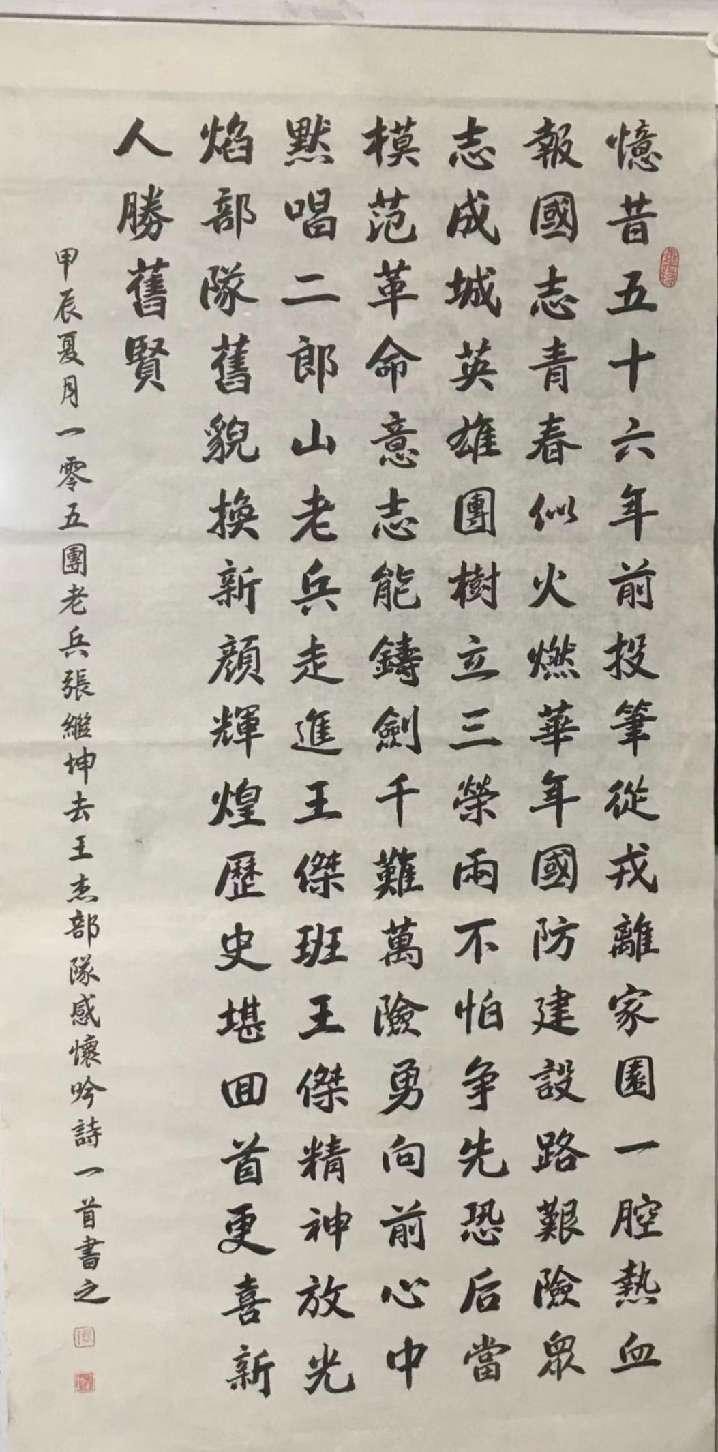 憶昔五十六年前投筆從戎離家園一腔熱血
報國志青春似火燃華年國防建設路艱險眾
志成城英雄團樹立三榮兩不怕争先恐后當
模范革命意志能鑄劍千難萬險勇向前心中
默唱二郎山老兵走進王傑班王傑精神放光
焰部隊舊貌換新顔輝煌歷史堪回首更喜新
人勝舊賢
甲辰夏月一零五團老兵張繼坤去王杰部隊感懷吟詩一首書之